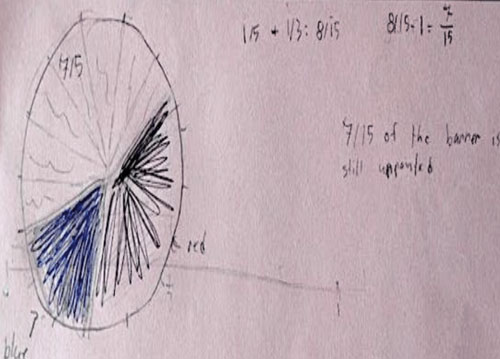 1/5 + 1/3 = 8/15
8/15-1 = 7/15
7/15
7/15 of the banner is
still unpainted
red
blue